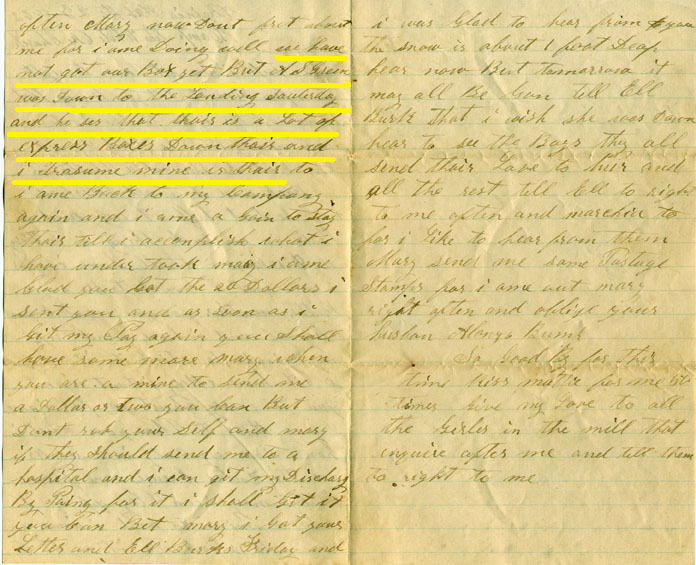 often Mary now Dont fret about
me for i ame Doing well we have
not got our Box yet But A S Green
was Down to the Landing Saterday
and he ses that thair is a Lot of
express Boxes Down thair and
i Prasume mine is thair to
i ame Back to my Company
again and i ame a Goin to stay
thair till i accomplish what i
have under took mary i ame
Glad you Got the 20 Dollars i
sent you and as soon as i
Git my Pay again you shall
have some more mary when
you are a mine to send me
a Dollar or two you can But
Dont rob your Self and mary
if they should send me to a
hospital and i can git my Discharg
By Paing for it i shall Git it
you can Bet mary i Got your
Letter and Ell Burks Friday and
i was Glad to hear from you
the snow is about 1 foot Deap
hear now But tomarrow it
may all Be Gon tell Ell
Burk that i wish she was Down
hear to see the Boys they all
send thair Love to her and
all the rest tell Ell to right
to me often and to
for i like to hear from them
Mary send me some Postage
Stamps for i ame out mary
right often and oblige your
husban Alonzo Bump
So Good By for This
time kiss mattie for me
times Give my Love to all
the Girles in the mill that
inquire after me and tell them
to right to me